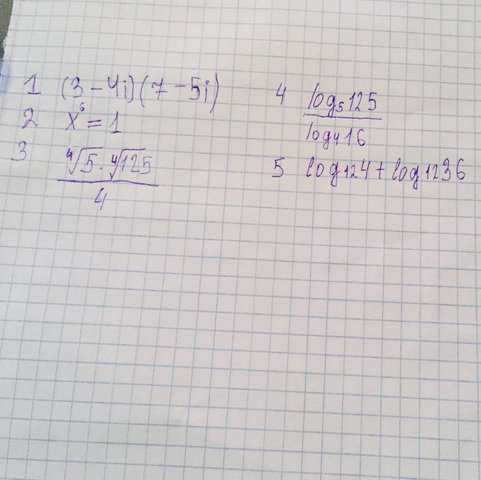 1 (3 - 4i)(7 - 5i)
2 x⁶ = 1
3 ⁴√5 · ⁴√125
4
4 log₅125
log₄16
5 log₁₂4 + log₁₂36